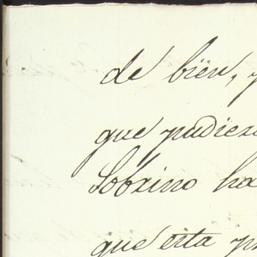 de bien, p
que pudiera
Sobrino ha
que esta p